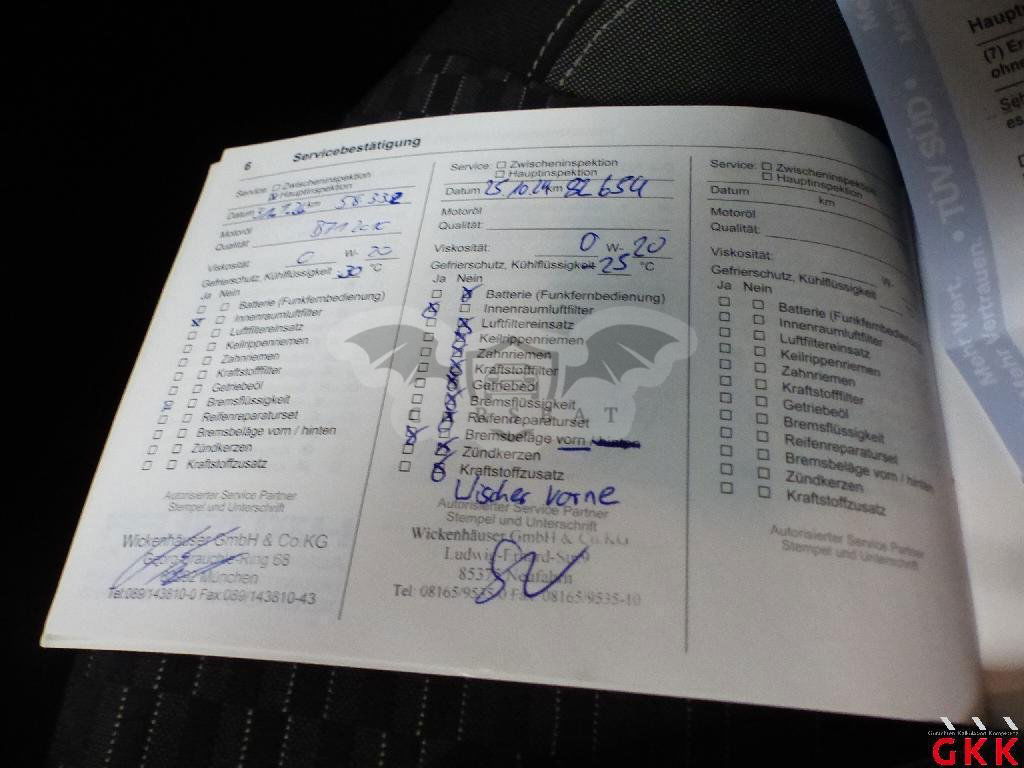 6 Servicebestätigung
Service: Zwischeninspektion
Hauptinspektion
Datum km 58 332
Motoröl
Qualität:
Viskosität: 0 W- 20
Gefrierschutz, Kühlflüssigkeit -30 °C
Ja Nein
Batterie (Funkfernbedienung)
Innenraumluftfilter
Luftfiltereinsatz
Keilrippenriemen
Zahnriemen
Kraftstofffilter
Getriebeöl
Bremsflüssigkeit
Reifenreparaturset
Bremsbeläge vorn / hinten
Zündkerzen
Kraftstoffzusatz
Autorisierter Service Partner
Stempel und Unterschrift
Wickenhäuser GmbH & Co.KG
Georg-Brauchle-Ring 68
München
Tel:089/143810-0 Fax:089/143810-43
Service: Zwischeninspektion
Hauptinspektion
Datum 25.10.24 km 82 654
Motoröl
Qualität:
Viskosität: 0 W- 20
Gefrierschutz, Kühlflüssigkeit 25 °C
Ja Nein
Batterie (Funkfernbedienung)
Innenraumluftfilter
Luftfiltereinsatz
Keilrippenriemen
Zahnriemen
Kraftstofffilter
Getriebeöl
Bremsflüssigkeit
Reifenreparaturset
Bremsbeläge vorn / hinten
Zündkerzen
Kraftstoffzusatz
Wischer vorne
Autorisierter Service Partner
Stempel und Unterschrift
Wickenhäuser GmbH & Co.KG
Neufahrn
Tel: Fax: 08165/9535-10
Service: Zwischeninspektion
Hauptinspektion
Datum km
Motoröl
Qualität:
Viskosität: W-
Gefrierschutz, Kühlflüssigkeit
Ja Nein
Batterie (Funkfernbedienung)
Innenraumluftfilter
Luftfiltereinsatz
Keilrippenriemen
Zahnriemen
Kraftstofffilter
Getriebeöl
Bremsflüssigkeit
Reifenreparaturset
Bremsbeläge vorn / hinten
Zündkerzen
Kraftstoffzusatz
Autorisierter Service Partner
Stempel und Unterschrift
TÜV SÜD
Mehr Wert.
Mehr Vertrauen.
Haupt
(7) Er
ohne
es
GKK